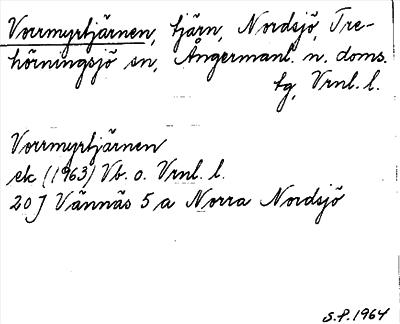 Vorrmyrtjärnen, tjärn, Nordsjö, Tre-
hörningsjö sn, Ångermanl. n. doms.
tg, Vrnl. l.
Vorrmyrtjärnen
ek (1963) Vb. o. Vrnl. l.
20 J Vännäs 5 a Norra Nordsjö
S.P. 1964